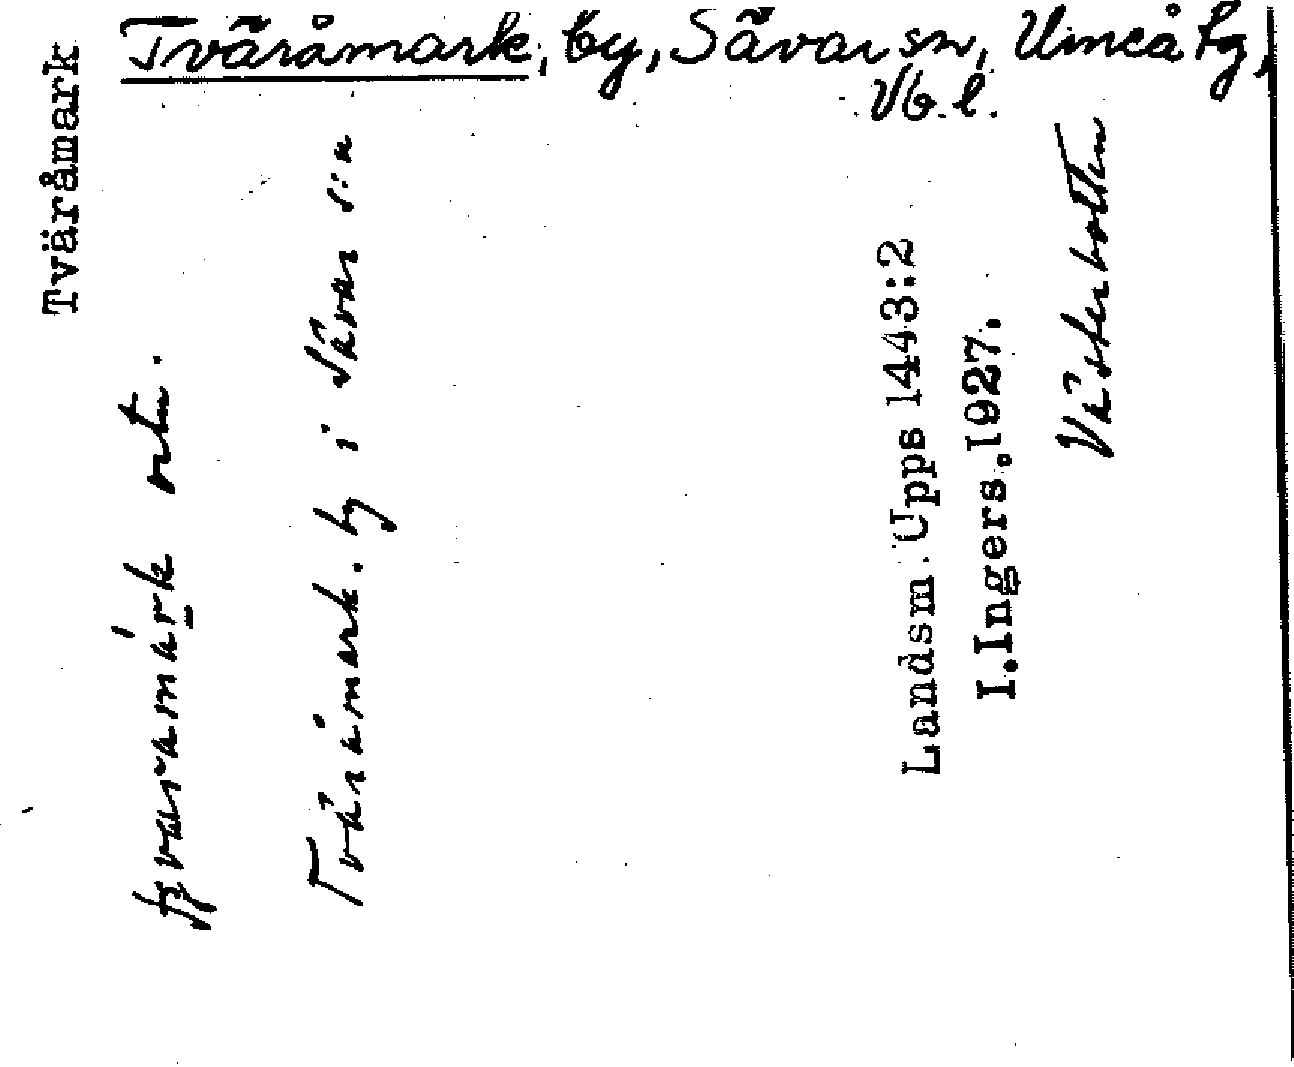 Tväråmark, by, Sävar sn, Umeå fg,
Vb. l.
Tväråmark
ortn.
Tväråmark. by i Sävar s:n
Landsm. Upps 1443:2
I. Ingers. 1927.
Västerbotten